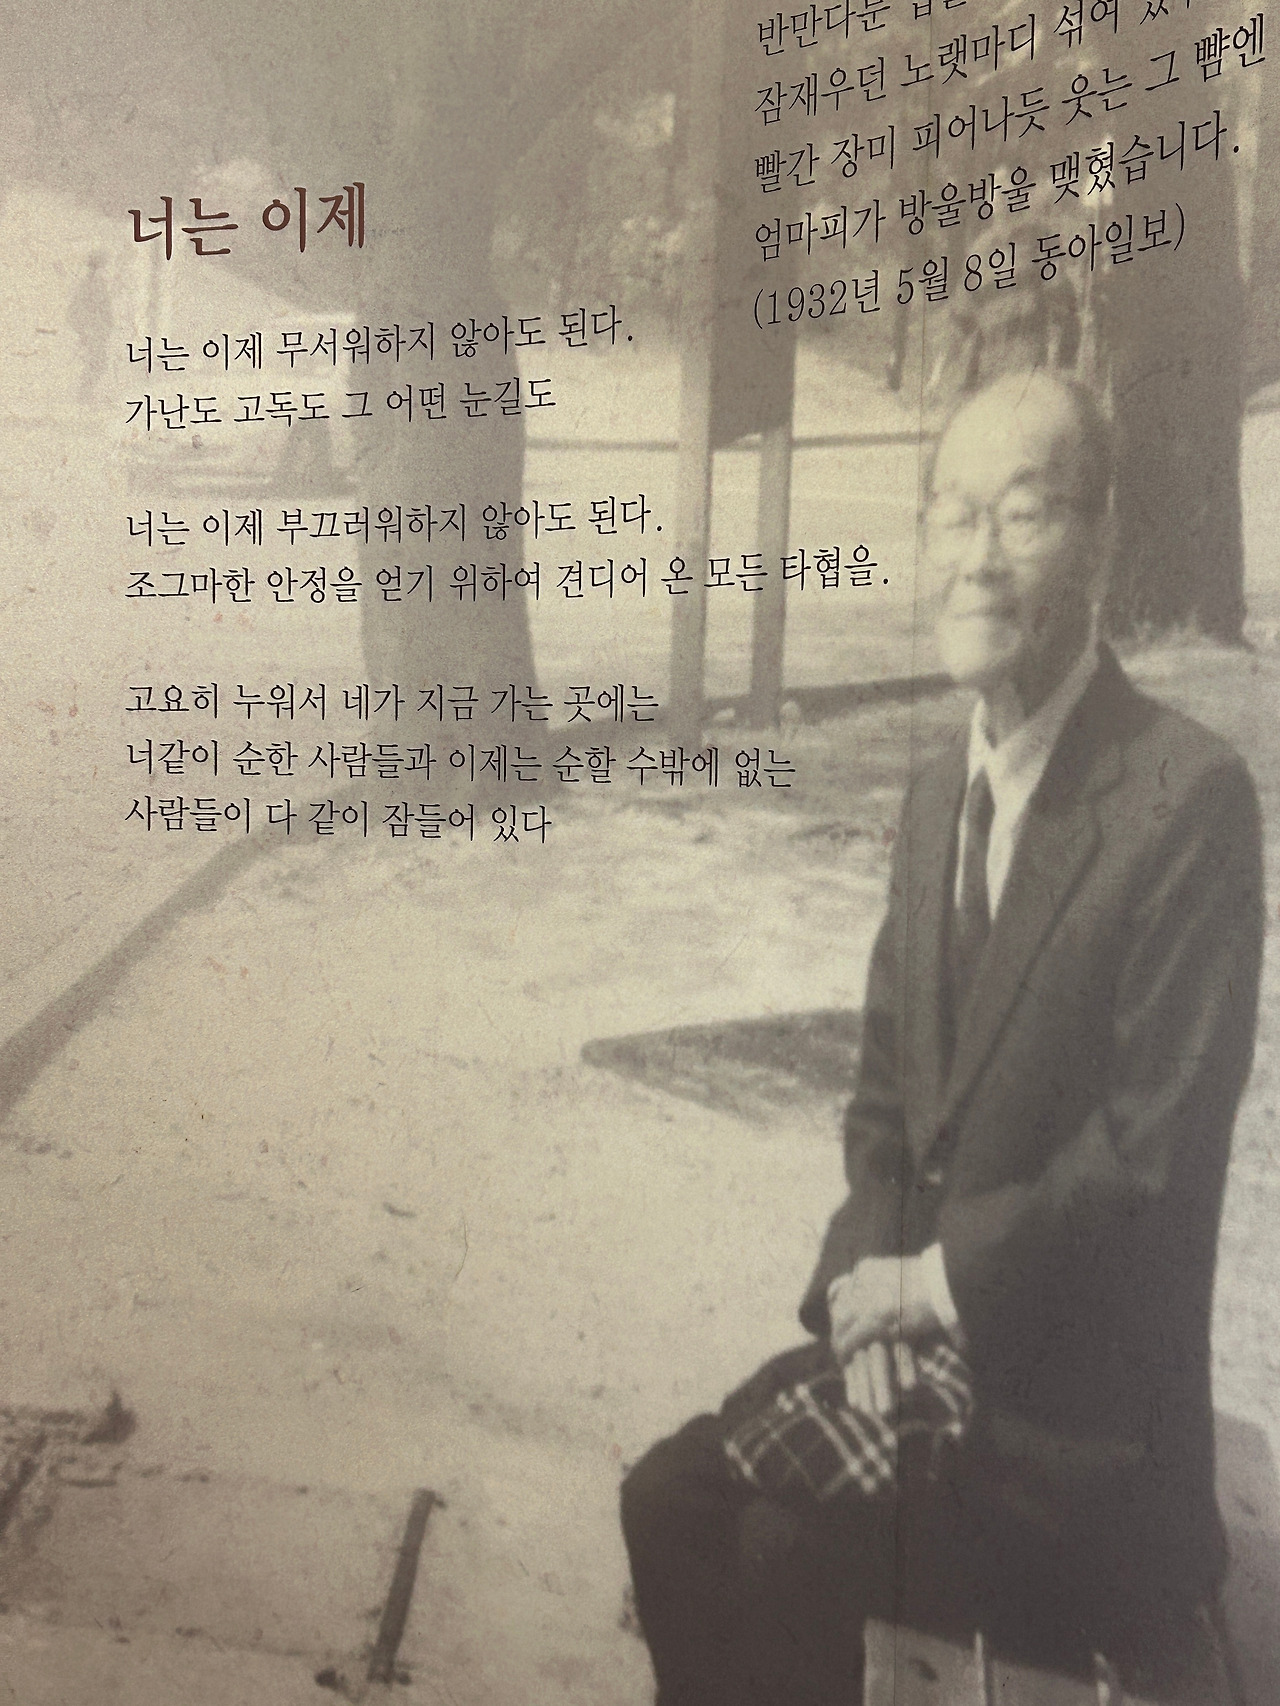 너는 이제
너는 이제 무서워하지 않아도 된다.
가난도 고독도 그 어떤 눈길도
너는 이제 부끄러워하지 않아도 된다.
조그마한 안정을 얻기 위하여 견디어 온 모든 타협을.
고요히 누워서 네가 지금 가는 곳에는
너같이 순한 사람들과 이제는 순할 수밖에 없는
사람들이 다 같이 잠들어 있다
반만다문
잠재우던 노랫마디 섞여
빨간 장미 피어나듯 웃는 그 뺨엔
엄마피가 방울방울 맺혔습니다.
(1932년 5월 8일 동아일보)